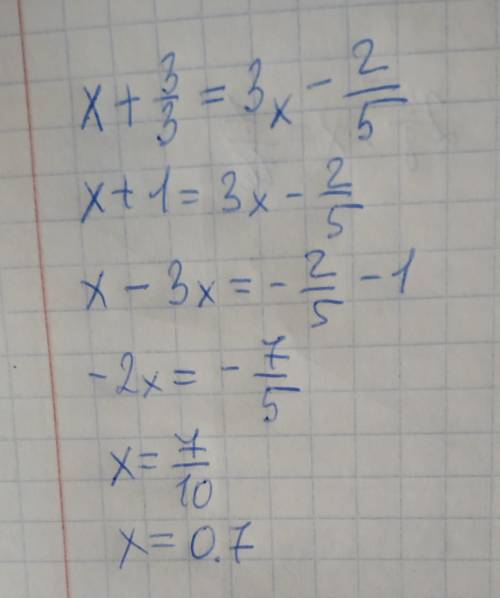 x + 3/3 = 3x - 2/5
x + 1 = 3x - 2/5
x - 3x = - 2/5 - 1
-2x = - 7/5
x = 7/10
x = 0.7